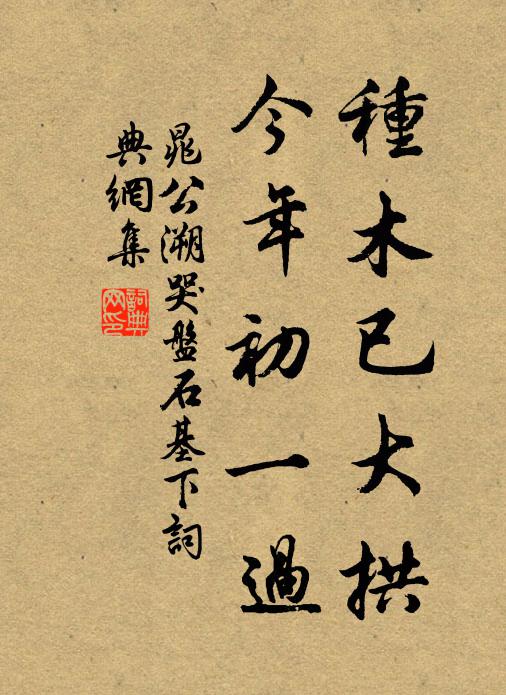 種木已大拱
今年初一過
晁公溯哭盤石基下詞
典網集
詞典
网印